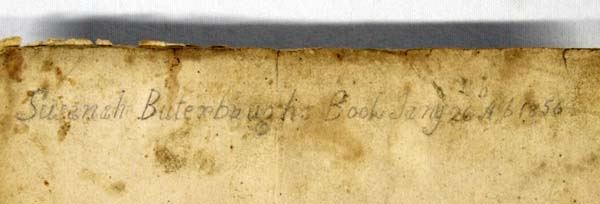 Susanah Buterbaughs Book Jany 26 1856